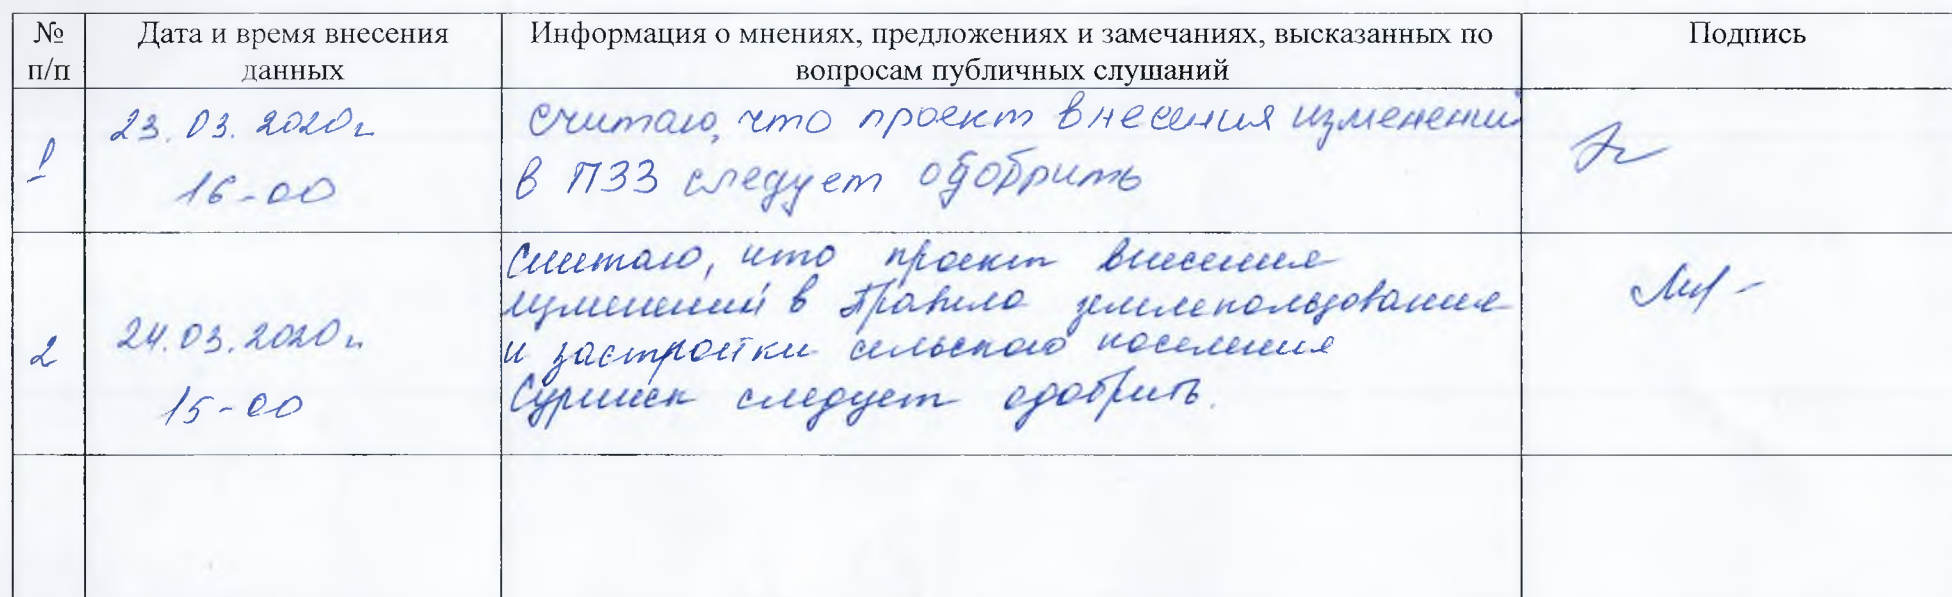 № п/п
Дата и время внесения данных
Информация о мнениях, предложениях и замечаниях, высказанных по вопросам публичных слушаний
Подпись
1
23.03.2020г
16-00
считаю, что проект внесения изменений
в ПЗЗ следует одобрить
2
24.03.2020г.
15-00
Считаю, что проект внесения
изменений в Правила землепользования
и застройки сельского поселения
Суринск следует одобрить.